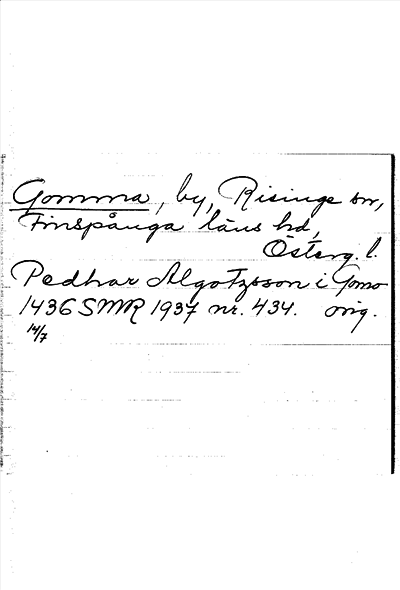 Gomma, by, Risinge sn,
Finspånga läns hd,
Österg. l.
Pedhar Algotzsson i Gomo
1436 SMR 1937 nr. 434. orig.
14/7